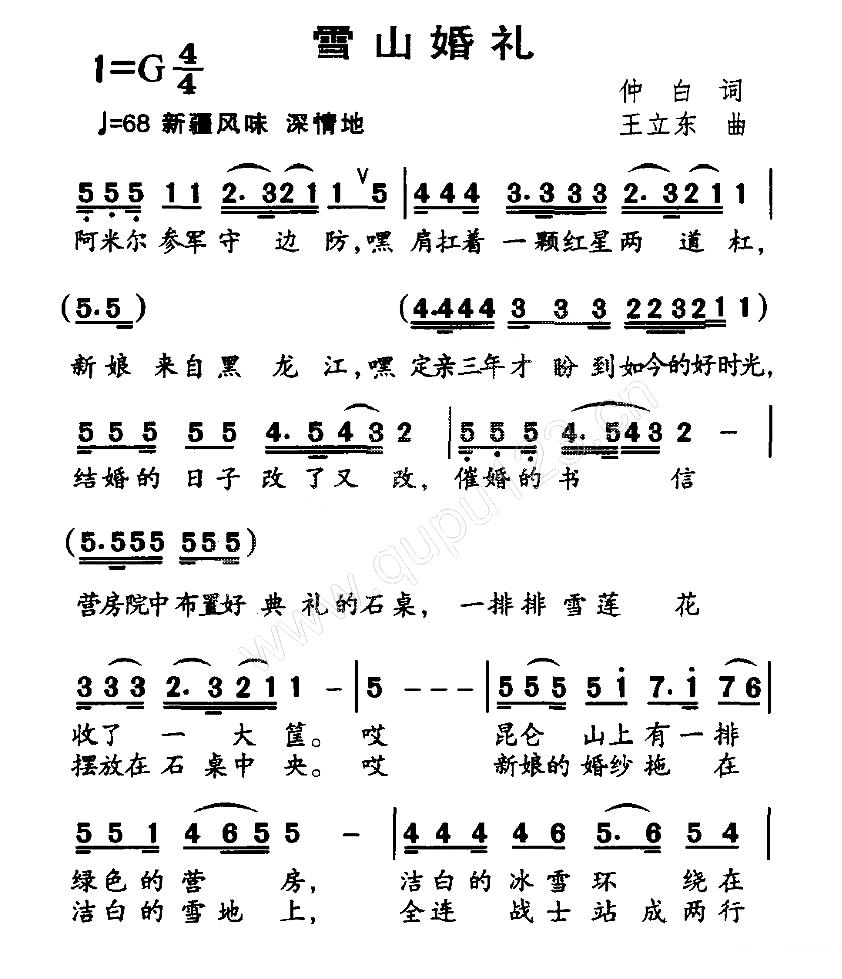 雪山婚礼
1=G 4/4
仲 白 词
♩=68 新疆风味 深情地
王立东 曲
5 5 5 1 1 2. 3 2 1 1 ∨ 5 | 4 4 4 3. 3 3 3 2. 3 2 1 1 |
阿米尔参军守 边 防,嘿 肩扛着 一颗红星两 道 杠,
(5. 5) (4. 4 4 4 3 3 3 2 2 3 2 1 1)
新娘 来自黑 龙 江,嘿 定亲三年才 盼到如今的好时光,
5 5 5 5 5 4. 5 4 3 2 | 5 5 5 4. 5 4 3 2 -
结婚的 日子 改 了又 改, 催婚的 书 信
(5. 5 5 5 5 5 5)
营房院中布置好 典 礼的石桌, 一排排 雪莲 花
3 3 3 2. 3 2 1 1 - | 5 - - - | 5 5 5 5 1 7. 1 7 6 |
收了 一 大 筐。 哎 昆仑 山上有一排
摆放在 石 桌中 央。 哎 新娘的 婚纱拖 在
5 5 1 4 6 5 5 - | 4 4 4 4 6 5. 6 5 4 |
绿色的 营 房, 洁白的冰雪环 绕在
洁白的 雪地 上, 全连 战士站 成两行
www.qupu123.cn